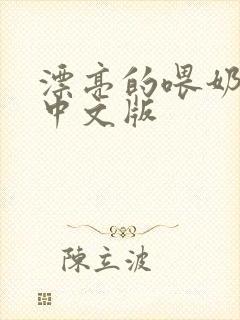 漂亮的喂奶
中文版
陳立波